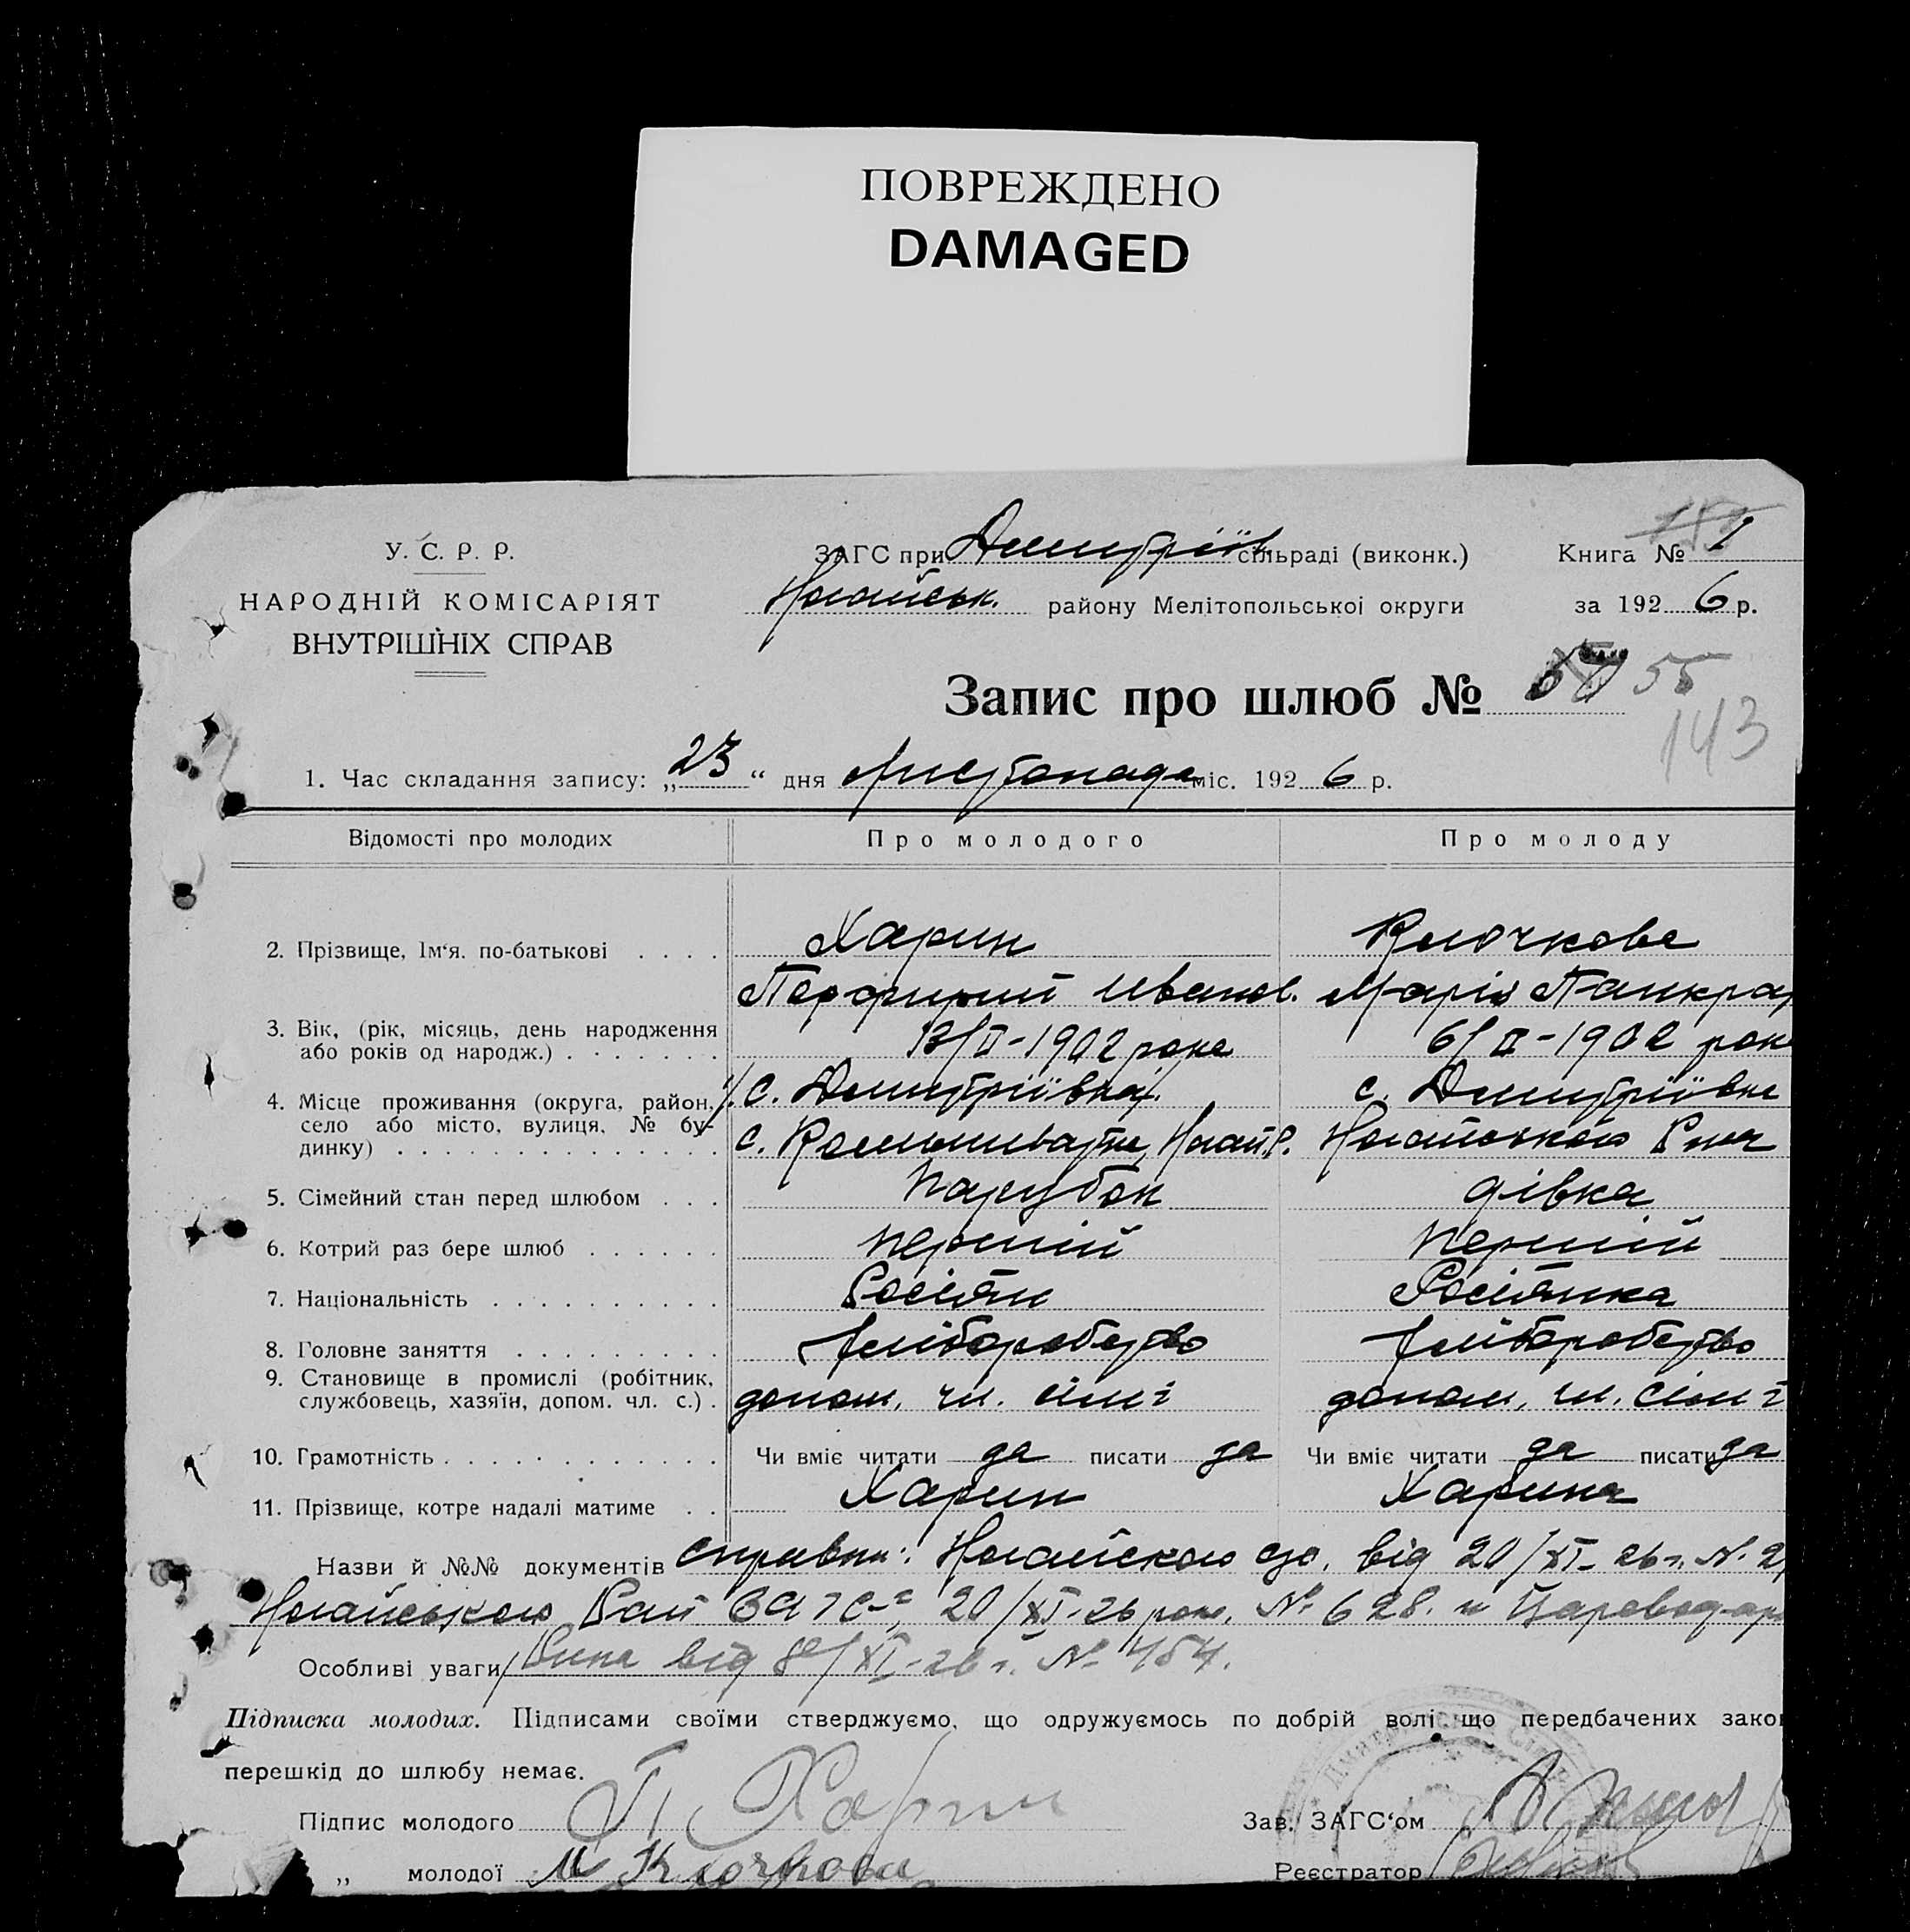 ПОВРЕЖДЕНО
DAMAGED
У. С. Р. Р.
НАРОДНІЙ КОМІСАРІЯТ
ВНУТРІШНІХ СПРАВ
ЗАГС при Дмитріїв сільраді (виконк.)
Ногайськ. району Мелітопольської округи
Книга №
за 1926 р.
Запис про шлюб № 55
143
1. Час складання запису: „23“ дня Листопада міс. 1926 р.
Відомості про молодих Про молодого Про молоду
2. Прізвище, Ім‘я. по-батькові . . . . Харин Клочкова
Порфирий Иванов. Марія Панкрат
3. Вік, (рік, місяць, день народження або років од народж.) . . . . . . . 13/II-1902 рока 6/II-1902 рок
4. Місце проживання (округа, район, село або місто, вулиця, № будинку) с. Дмитріївка с. Дмитріївка
с. Ногай.Р. Ногайського
5. Сімейний стан перед шлюбом . . . Парубок дівка
6. Котрий раз бере шлюб . . . . . . Перший Перший
7. Національність . . . . . . . . . . Росіян Росіянка
8. Головне заняття . . . . . . . . . хліборобство хліборобство
9. Становище в промислі (робітник, службовець, хазяїн, допом. чл. с.) . допом. чл. сімї допом. чл. сімї
10. Грамотність . . . . . . . . . . . . Чи вміє читати да писати да Чи вміє читати да писати да
11. Прізвище, котре надалі матиме . . Харин Харина
Назви й №№ документів справки: Ногайского від 20/XI-26 г. №
Ногайського Рай ЗАГС-а, 20/XI-26 рока, № 628. и
Особливі уваги від /XI-26 г. № 454.
Підписка молодих. Підписами своїми стверджуємо, що одружуємось по добрій волі що передбачених зако
перешкід до шлюбу немає.
Підпис молодого П Харин Зав. ЗАГС‘ом
„ молодої М Клочкова Реєстратор